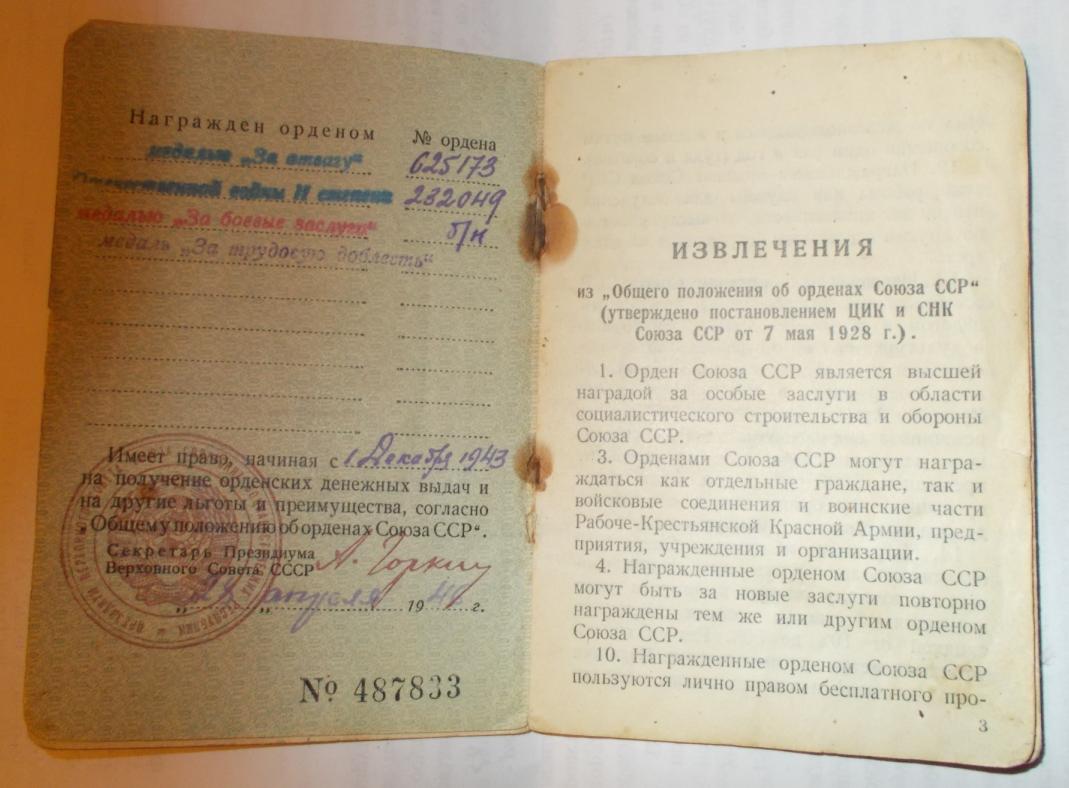 Награжден орденом № ордена
медалью „За отвагу“ 625173
Отечественной войны II степени 232049
медалью „За боевые заслуги“ б/н
медаль „За трудовую доблесть“
Имеет право, начиная с 1 Декабря 1943
на получение орденских денежных выдач и
на другие льготы и преимущества, согласно
„Общему положению об орденах Союза ССР“.
Секретарь Президиума
Верховного Совета СССР А. Горкин
„28“ апреля 194 г.
№ 487833
ИЗВЛЕЧЕНИЯ
из „Общего положения об орденах Союза ССР“
(утверждено постановлением ЦИК и СНК
Союза ССР от 7 мая 1928 г.).
1. Орден Союза ССР является высшей
наградой за особые заслуги в области
социалистического строительства и обороны
Союза ССР.
3. Орденами Союза ССР могут награ-
ждаться как отдельные граждане, так и
войсковые соединения и воинские части
Рабоче-Крестьянской Красной Армии, пред-
приятия, учреждения и организации.
4. Награжденные орденом Союза ССР
могут быть за новые заслуги повторно
награждены тем же или другим орденом
Союза ССР.
10. Награжденные орденом Союза ССР
пользуются лично правом бесплатного про-
3